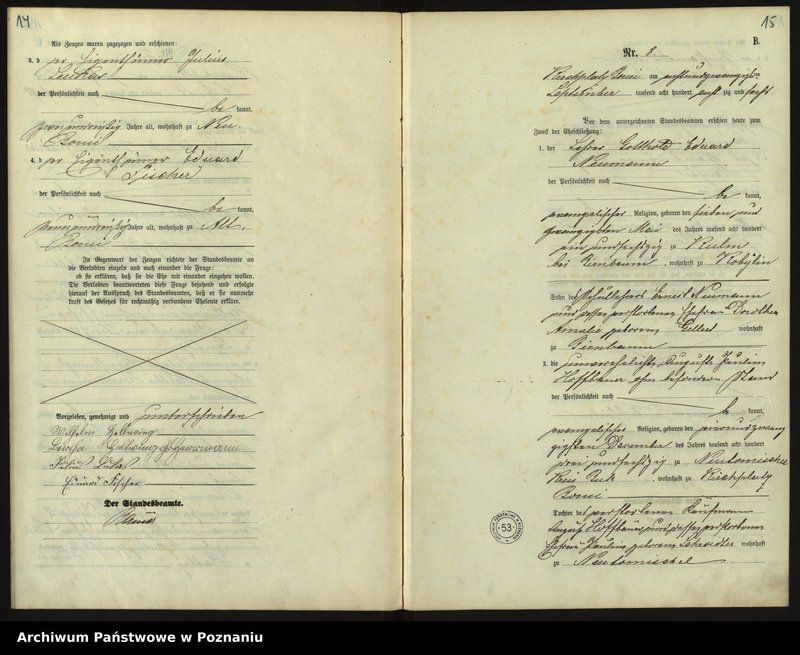 14
Als Zeugen waren zugezogen und erschienen:
3. der Eigenthümer Julius
der Persönlichkeit nach
be kannt,
Jahre alt, wohnhaft zu Neu-
Borui
4. der Eigenthümer Eduard
Fischer
der Persönlichkeit nach
be kannt,
Jahre alt, wohnhaft zu Alt-
Borui
In Gegenwart der Zeugen richtete der Standesbeamte an
die Verlobten einzeln und nach einander die Frage:
ob sie erklären, daß sie die Ehe mit einander eingehen wollen.
Die Verlobten beantworteten diese Frage bejahend und erfolgte
hierauf der Ausspruch des Standesbeamten, daß er sie nunmehr
kraft des Gesetzes für rechtmäßig verbundene Eheleute erkläre.
Vorgelesen, genehmigt und unterschrieben
Wilhelm Hellwing
Hellwing
Julius
Eduard Fischer
Der Standesbeamte.
15
B.
Nr. 8.
Kirchplatz Borui am achtundzwanzigsten
September tausend acht hundert acht zig und sechs
Vor dem unterzeichneten Standesbeamten erschien heute zum
Zweck der Eheschließung:
1. der Lehrer Gotthold Eduard
Neumann
der Persönlichkeit nach
be kannt,
evangelischer Religion, geboren den sieben und
zwanzigsten Mai des Jahres tausend acht hundert
ein und sechzig zu Kulm
bei Birnbaum, wohnhaft zu Kobylin
Sohn des Schullehrers Ernst Neumann
und dessen verstorbenen Ehefrau Dorothea
Amalie geborene Gellert wohnhaft
zu Birnbaum
2. die unverehelichte Auguste Pauline
Hoffbauer ohne besonderen Stand
der Persönlichkeit nach
be kannt,
evangelischer Religion, geboren den
zigsten Dezember des Jahres tausend acht hundert
drei und sechzig zu Neutomischel
Kreis Buk, wohnhaft zu Kirchplatz
Borui
Tochter des verstorbenen Kaufmann
August Hoffbauer und dessen verstorbenen
Ehefrau Pauline geborene wohnhaft
zu Neutomischel
53
Archiwum Państwowe w Poznaniu